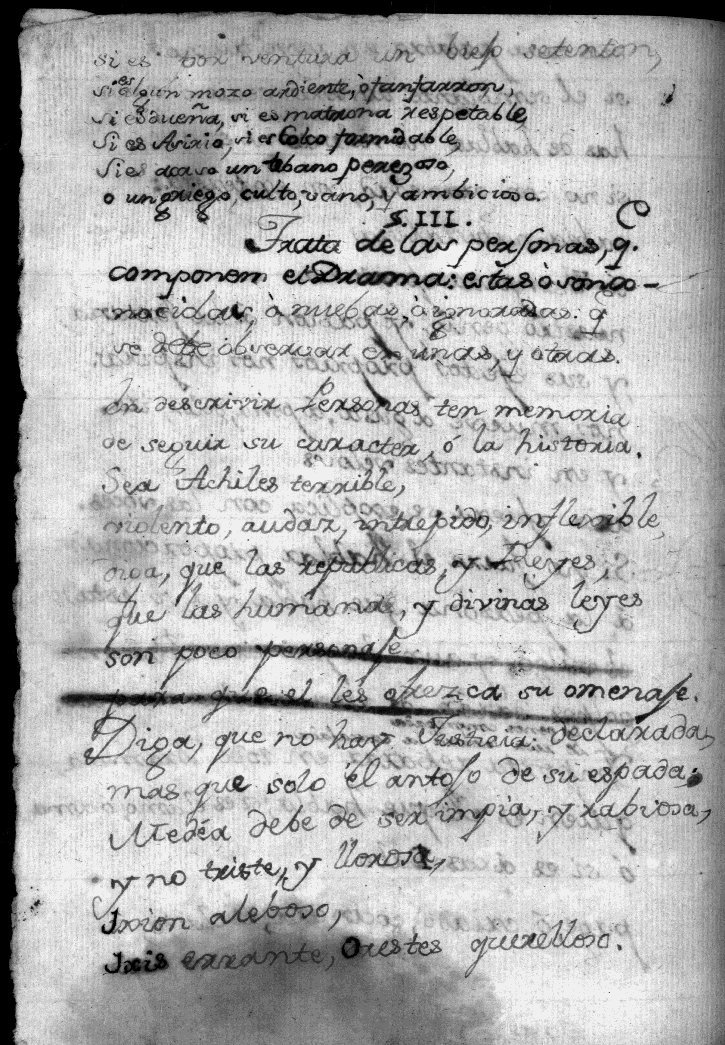 si es por ventura un biejo setenton,
si es algun mozo ardiente, ò fanfarron,
si es dueña, si es matrona respetable,
si es Asirio, si es Colco formidable,
Si es acaso un tebano perezoso,
o un griego, culto, vano, y ambicioso.
§. III.
Trata de las personas, q.
componen el Drama: estas ò son co-
nocidas, ò nuebas, ò ignoradas. q
se debe observar en unas, y otras.
En descrivir Personas ten memoria
de seguir su caracter, ó la historia.
Sea Achiles terrible,
violento, audaz, intrepido, inflexible,
diga, que las republicas, y Reyes,
que las humanas, y divinas leyes
son poco personaje
para que el les ofrezca su omenaje.
Diga, que no hay Justicia declarada,
mas, que solo el antojo de su espada;
Medéa debe de ser impia, y rabiosa,
y no triste, y llorosa,
Ixion aleboso,
Ixis errante, Orestes querelloso.